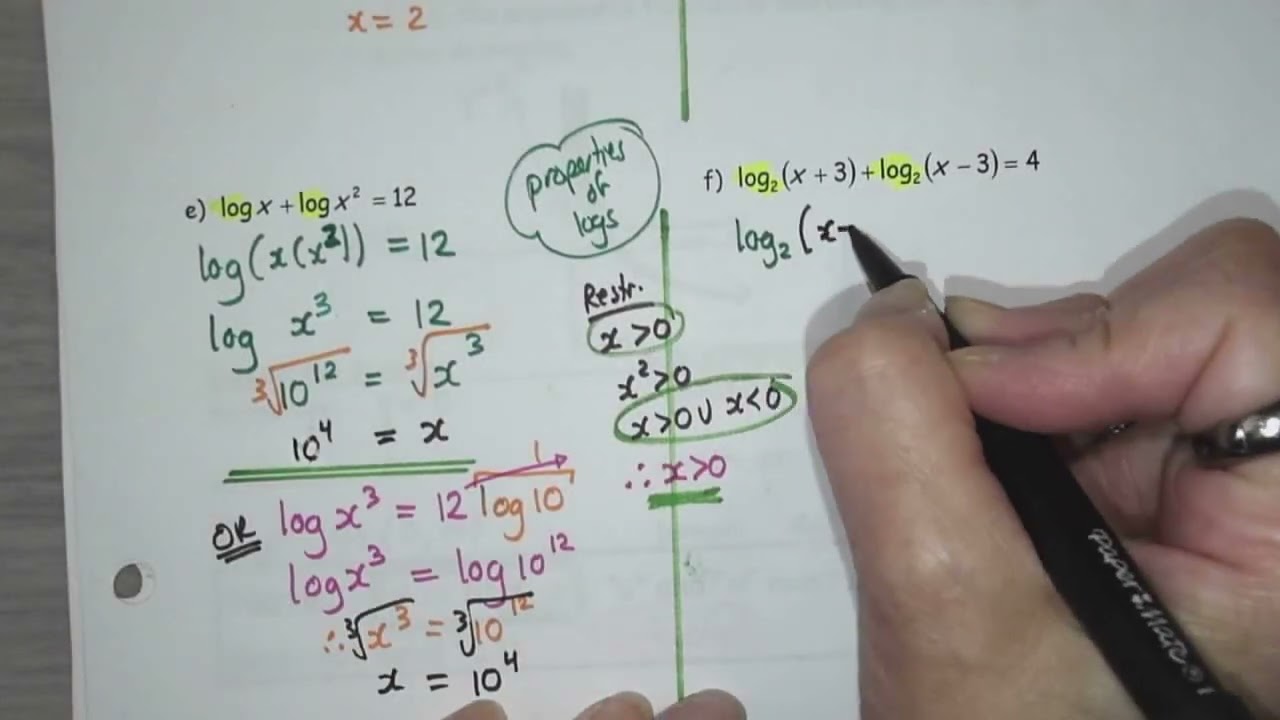 x = 2
e) log x + log x² = 12
log(x(x²)) = 12
log x³ = 12
∛10¹² = ∛x³
10⁴ = x
OR log x³ = 12 log 10 1
log x³ = log 10¹²
∴ ∛x³ = ∛10¹²
x = 10⁴
properties
of
logs
Restr.
x > 0
x² > 0
x > 0 ∪ x < 0
∴ x > 0
f) log₂(x + 3) + log₂(x − 3) = 4
log₂(x
Paper Mate ®